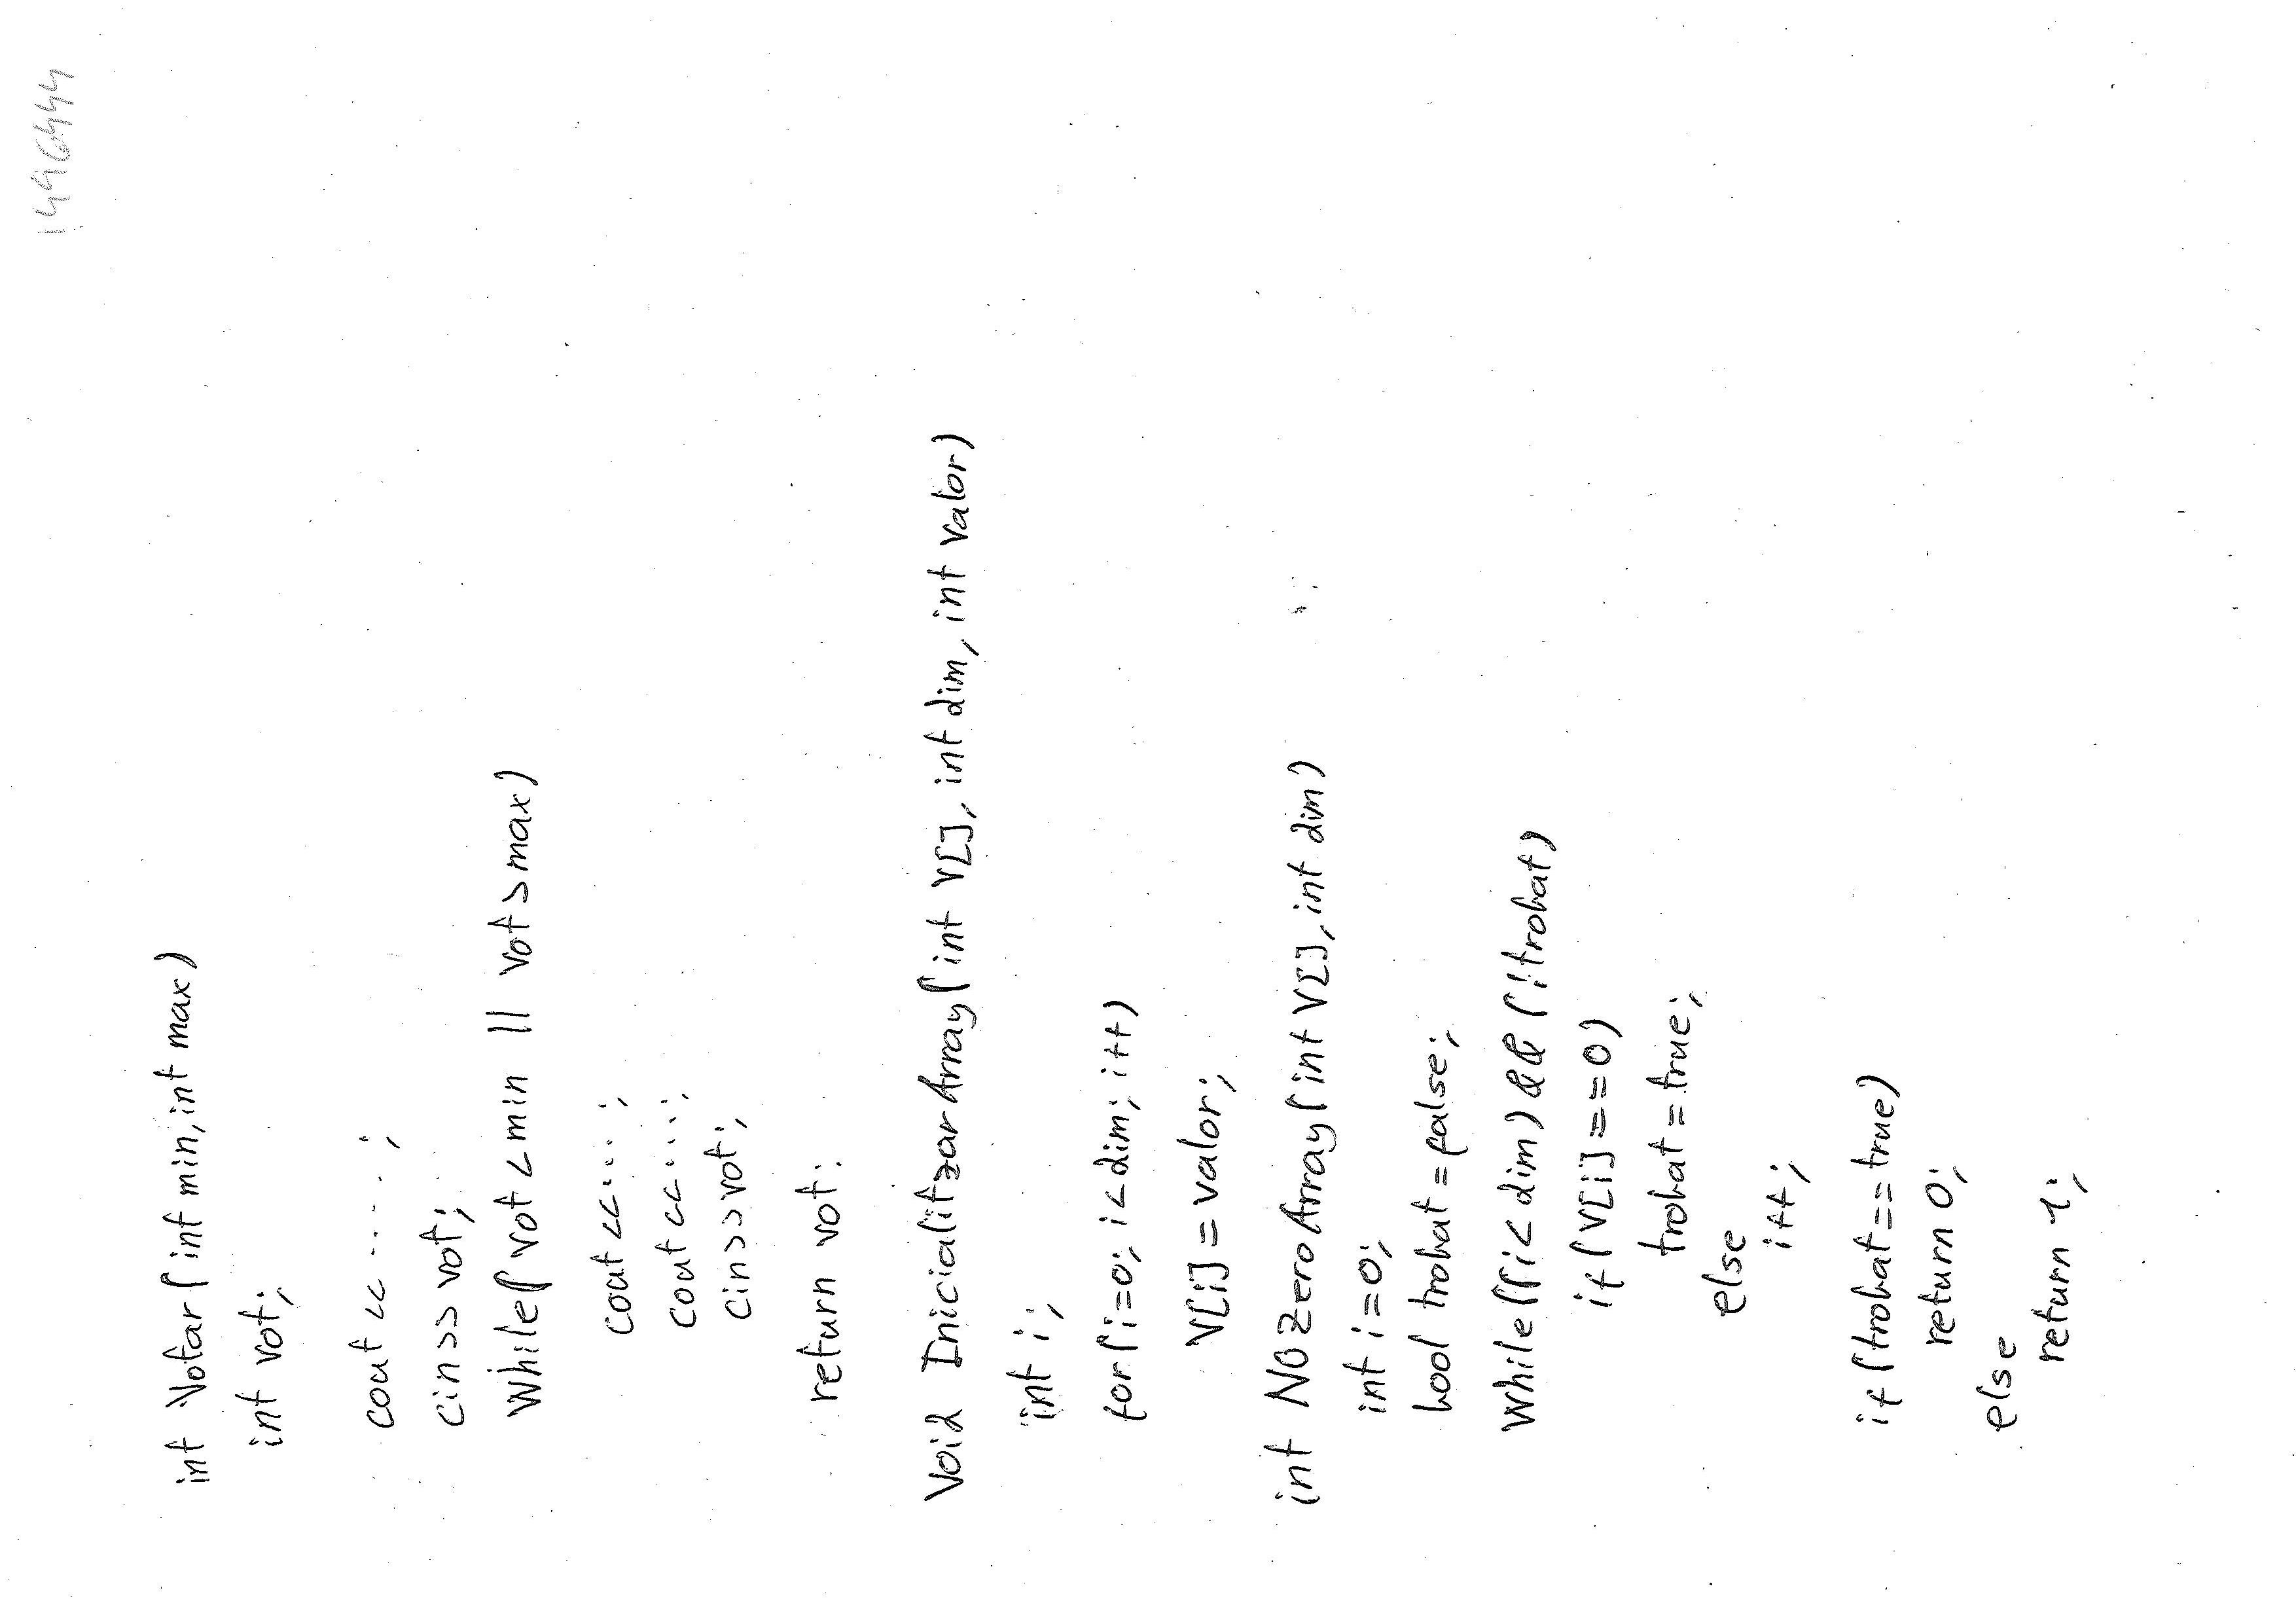 1496444
int Votar(int min, int max)
int vot;
cout << ....;
cin >> vot;
while(vot < min || vot > max)
cout <<....;
cout <<....;
cin >> vot;
return vot;
Void InicialitzarArray(int V[], int dim, int valor)
int i;
for(i=0; i<dim; i++)
V[i] = valor;
int NOzeroArray(int V[], int dim)
int i=0;
bool trobat = false;
while((i<dim) && (!trobat)
if(V[i]==0)
trobat = true;
else
i++;
if(trobat==true)
return 0;
else
return 1;